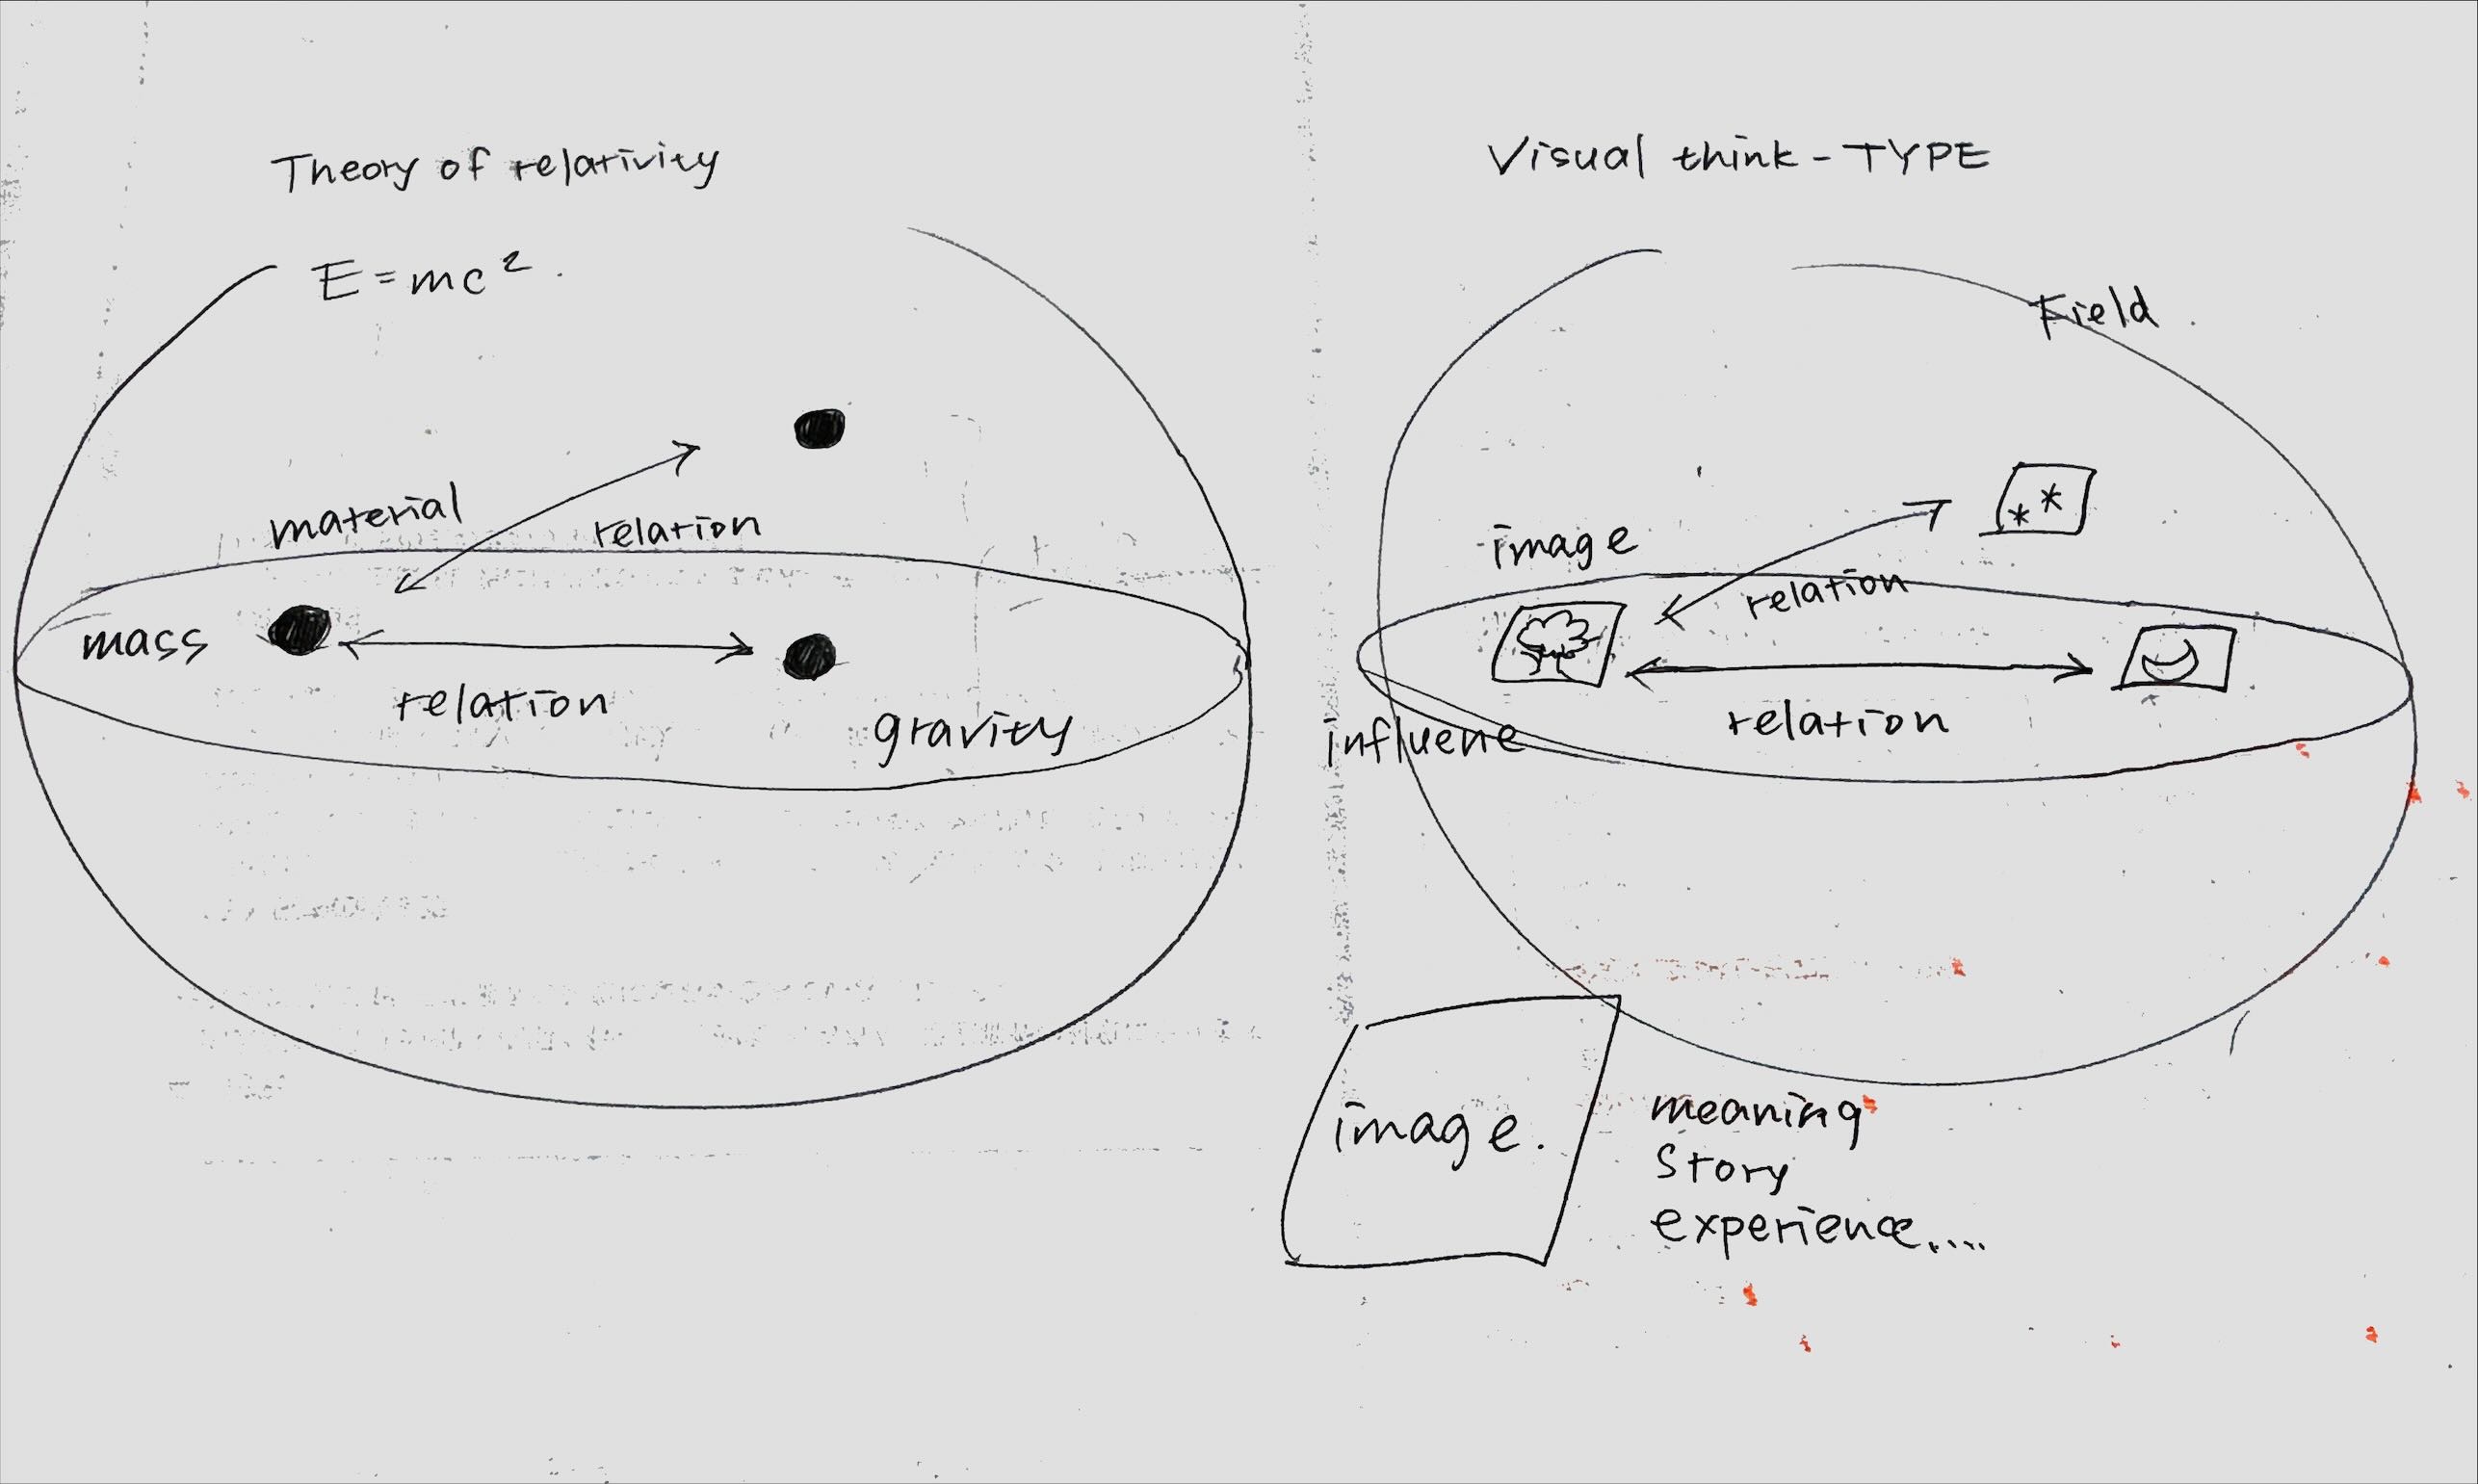 Theory of relativity
E=mc².
material
relation
mass
relation
gravity
Visual think-TYPE
Field
image
relation
influene
relation
image.
meaning
story
experience....